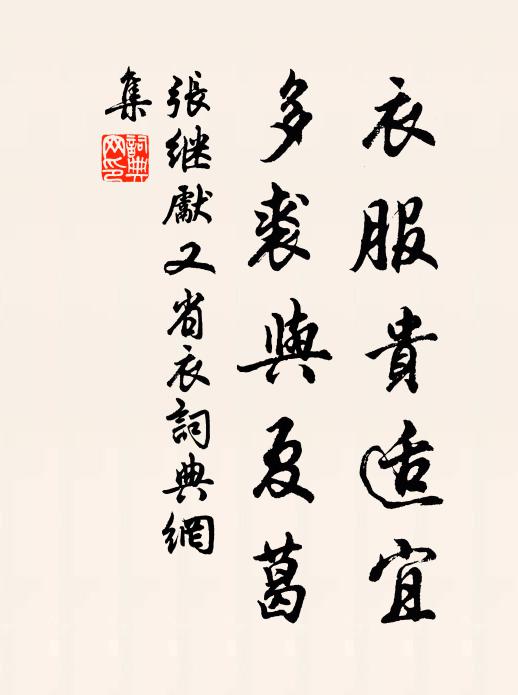 衣服貴适宜
多裘與夏葛
張继獻又省衣詞典網
集
詞典
网印